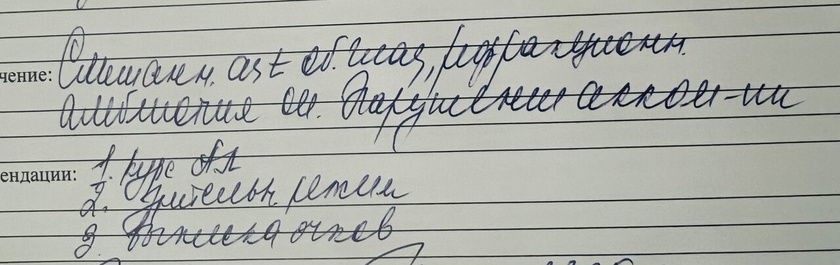 чение: Смешанн. ast об. глаз, рефракционн.
амблиопия сл. Нарушение акком-ии
ендации: 1. курс АЛ
2. Зрительн. режим
3. Выписка очков